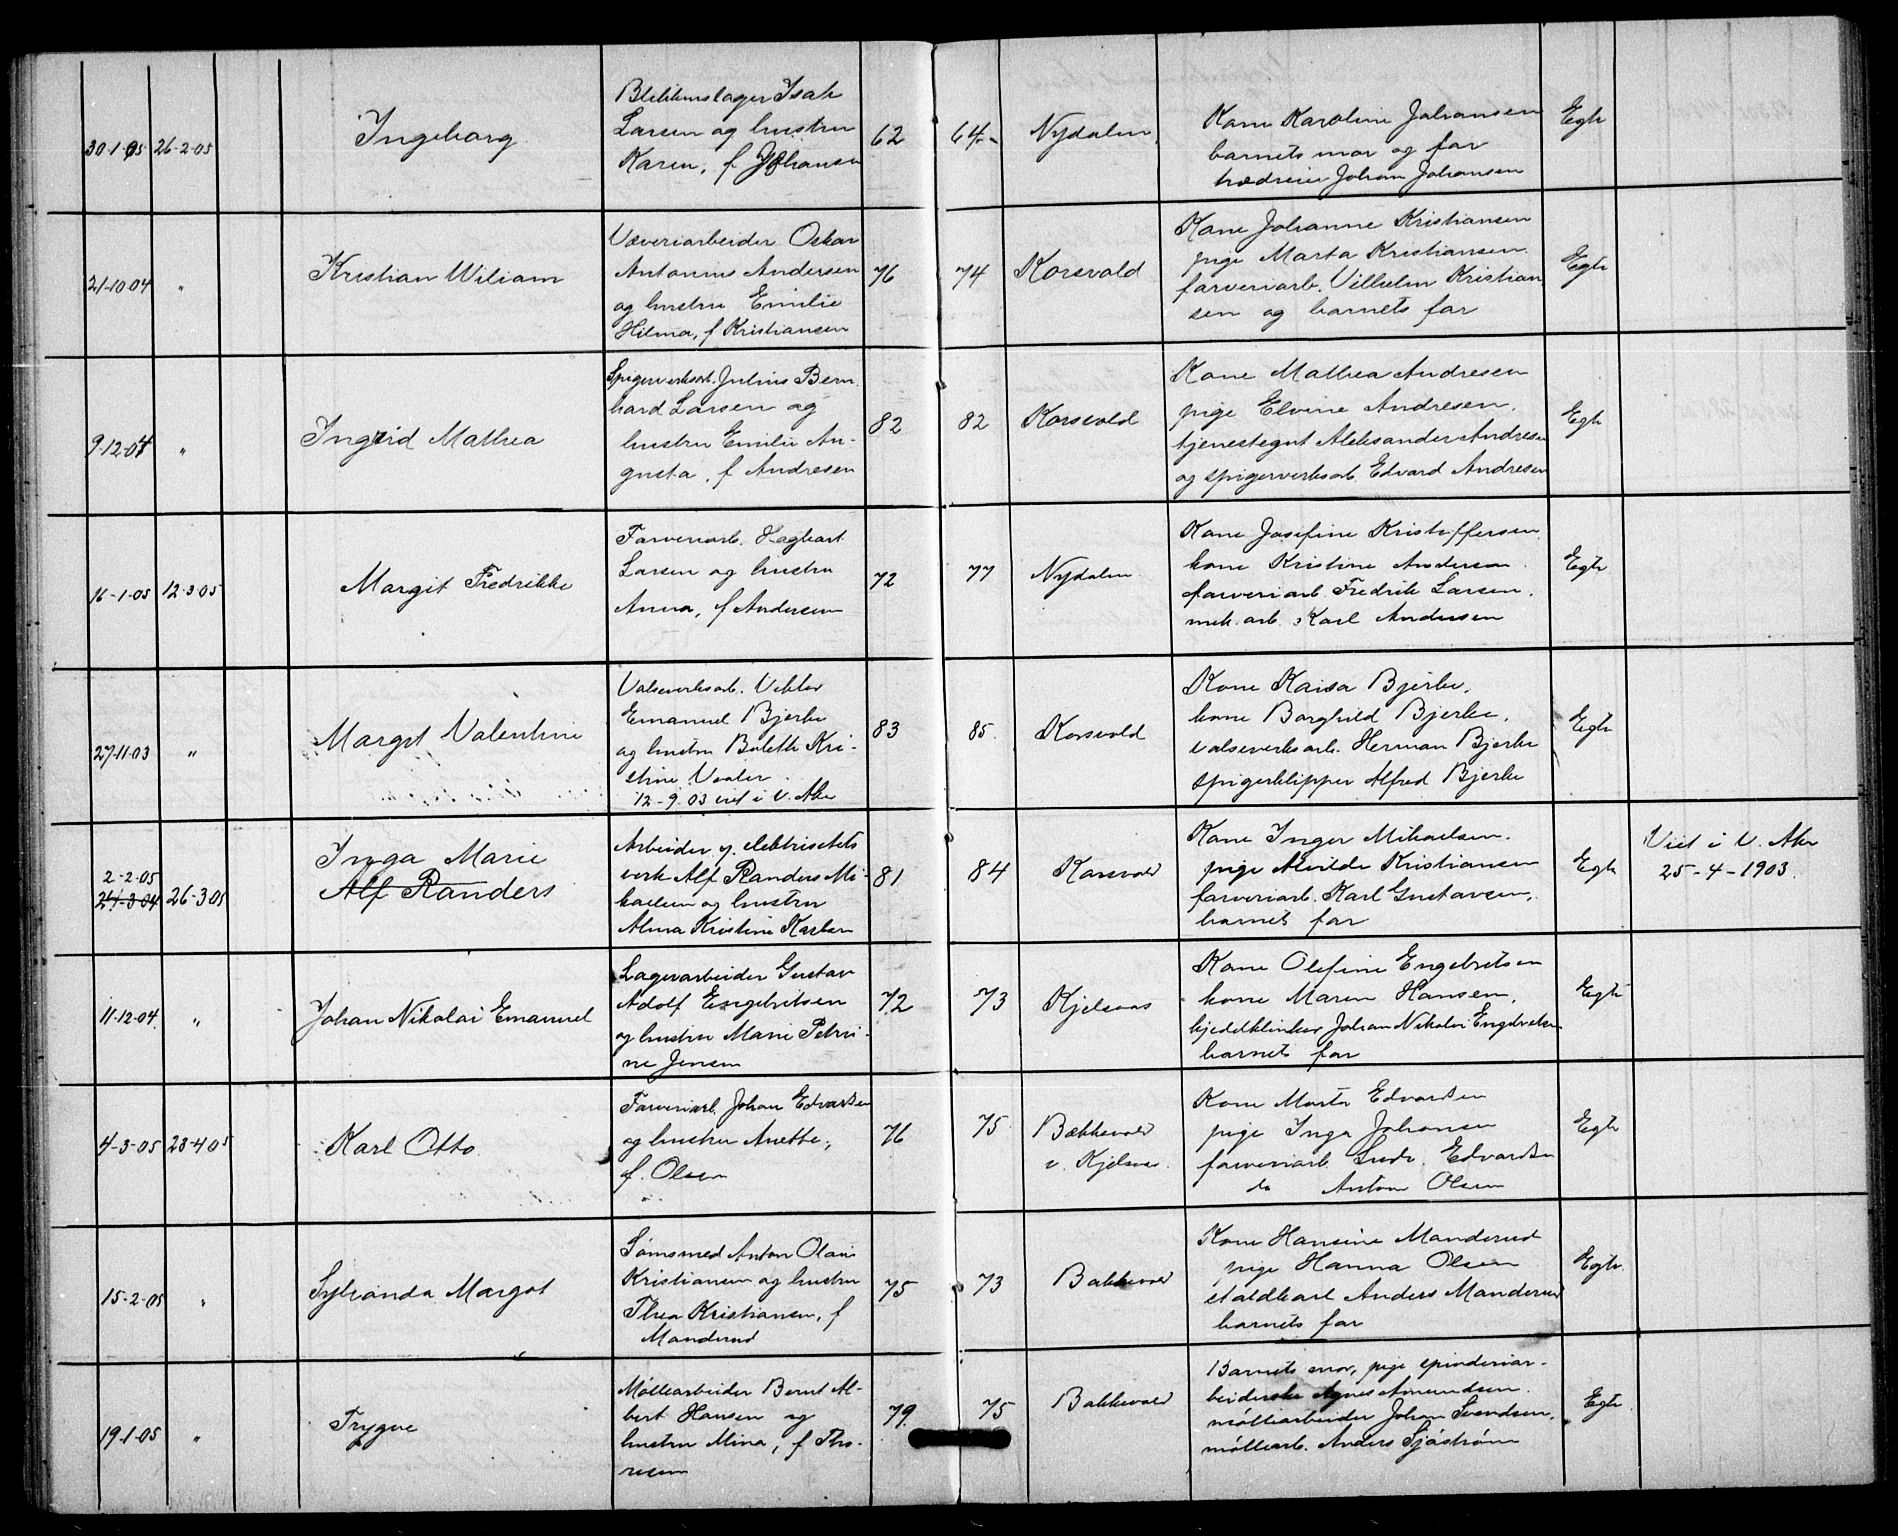 30-1-05 26-2-05 Ingeborg
Blikkenslager Isak
Larsen og hustru
Karen, f. Johansen
62 64 Nydalen
Kone Karoline Johansen
barnets mor og far
Johan Johansen
Egte
21-10-04 " Kristian Wiliam
Væveriarbeider Oskar
Antonius Andersen
og hustru Emilie
Hilma, f. Kristiansen
76 74 Korsvold
Kone Johanne Kristiansen
pige Marta Kristiansen
farveriarb. Vilhelm Kristian
sen og barnets far
Egte
9-12-04 " Ingrid Mathea
Spigerverksarb. Julius Bern
hard Larsen og
hustru Emilie Au-
gusta, f. Andresen
82 82 Korsvold
Kone Mathea Andresen
pige Elvine Andresen,
tjenestegut Aleksander Andresen
og spigerverksarb. Edvard Andresen
Egte
16-1-05 12-3-05 Margit Fredrikke
Farveriarb. Hagbart
Larsen og hustru
Anna, f. Andersen
72 77 Nydalen
Kone Josefine Kristoffersen
kone Kristine Anderson
farveriarb. Fredrik Larsen,
mek. arb. Karl Andersen
Egte
27-11-03 " Margit Valentine
Valseverksarb. Viktor
Emanuel Bjerke
og hustru Bolette Kri-
stine Vaaler
12-9-03 viet i V. Aker
83 85. Korsvold
Kone Kaisa Bjerke,
kone Borghild Bjerke,
valseverksarb. Herman Bjerke
spigerklipper Alfred Bjerke
Egte
2-2-05
21-3-04 26-3-05
Inga Marie
Alf Randers
Arbeider v. elektrisitets
verk Alf Randers Mi-
kaelsen og hustru
Alma Kristine Karlsen
81 84 Korsvold
Kone Inger Mikaelsen.
pige Alvilde Kristiansen
farveriarb. Karl Gustavsen,
barnets far
Egte
Viet i V. Aker
25-4-1903.
11-12-04. " Johan Nikolai Emanuel
Lagerarbeider Gustav
Adolf Engebretsen
og hustru Marie Petri-
ne Jensen
72 73 Kjelsaas
Kone Olefine Engebretsen
kone Maren Hansen,
kjedelklinker Johan Nikolai Engebretsen
barnets far
Egte
4-3-05 23-4-05 Karl Otto
Farveriarb. Johan Edvardsen
og hustru Anette,
f. Olsen
76 75 Bakkevold
v. Kjelsaas.
Kone Marta Edvardsen
pige Inga Johansen
farveriarb. Ludv. Edvardsen
do Anton Olsen
Egte
15-2-05 " Sylvanda Margot
Sømsmed Anton Olai
Kristiansen og hustru
Thea Kristiansen, f.
Manderud
75 73 Bakkevold
Kone Hansine Manderud
pige Hanna Olsen
staldkarl Anders Manderud
barnets far
Egte
19-1-05 " Trygve
Møllearbeider Bernt Al-
bert Hansen og
hustru Mina, f. Tho-
resen
79. 75 Bakkevold
Barnets mor, pige spinderiar-
beiderske Agnes Amundsen.
møllearbeider Johan Svendsen,
møllearb. Anders Sjøstrøm
Egte